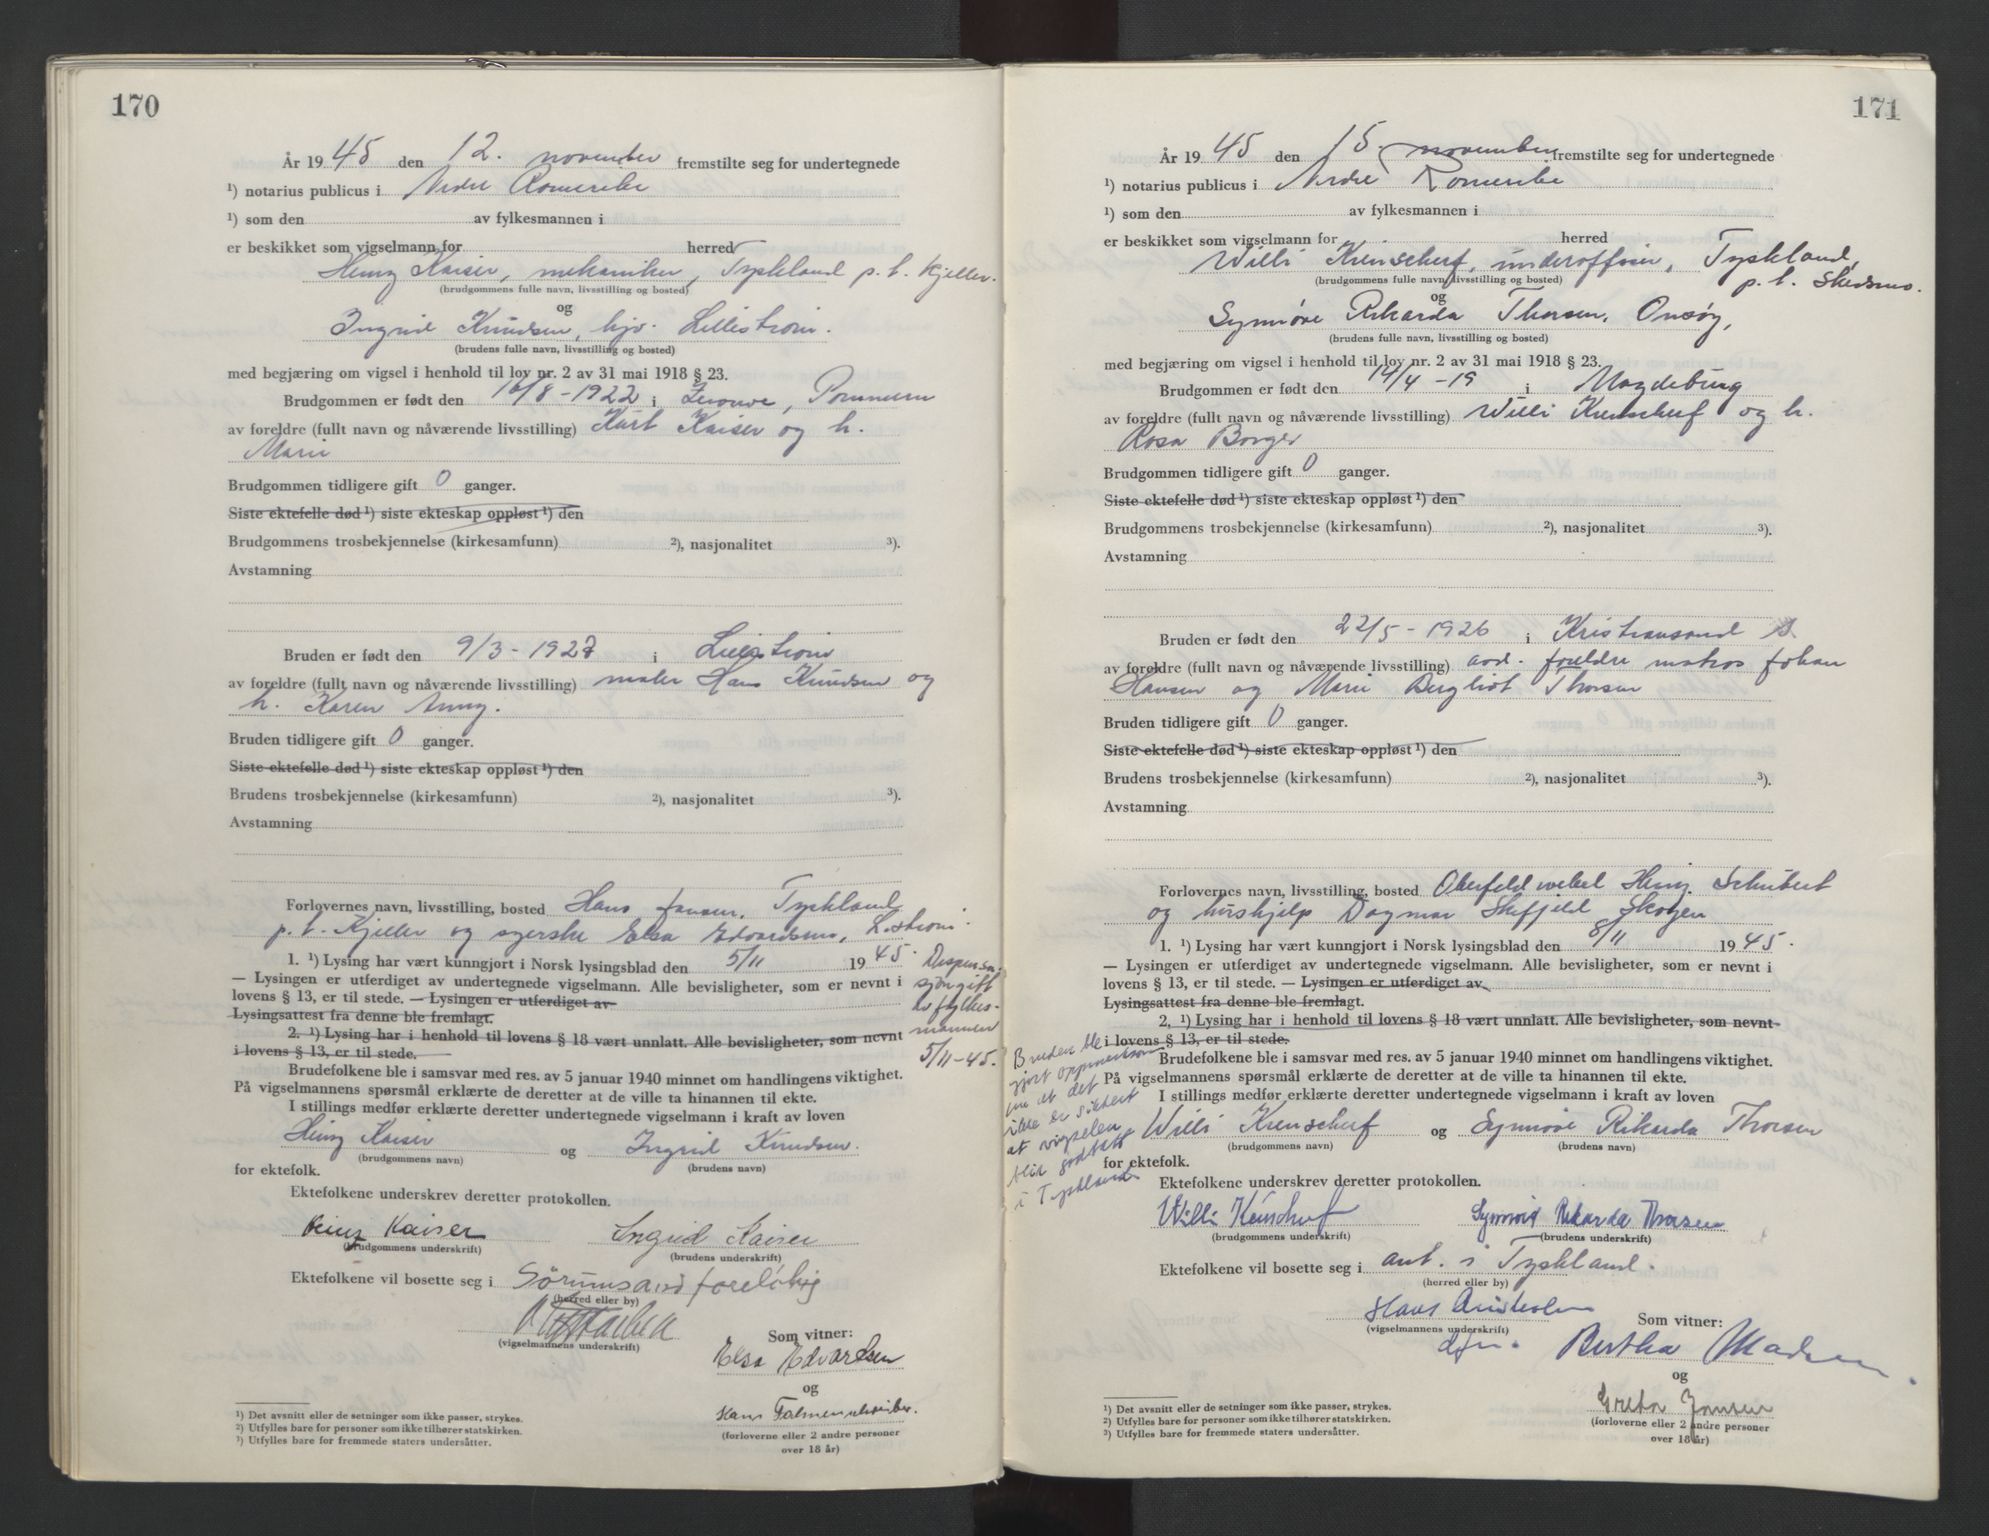 170
År 1945 den 12. november fremstilte seg for undertegnede
¹) notarius publicus i Nedre Romerike
¹) som den av fylkesmannen i
er beskikket som vigselmann for herred
Heinz Kaiser, mekaniker, Tyskland p.t. Kjeller.
(brudgommens fulle navn, livsstilling og bosted)
og
Ingrid Knudsen, hjv. Lillestrøm.
(brudens fulle navn, livsstilling og bosted)
med begjæring om vigsel i henhold til lov nr. 2 av 31 mai 1918 § 23.
Brudgommen er født den 16/8-1922 i Pommern
av foreldre (fullt navn og nåværende livsstilling) Kurt Kaiser og h.
Marie
Brudgommen tidligere gift 0 ganger.
Siste ektefelle død ¹) siste ekteskap oppløst ¹) den
Brudgommens trosbekjennelse (kirkesamfunn) ²), nasjonalitet ³).
Avstamning
Bruden er født den 9/3-1927 i Lillestrøm
av foreldre (fullt navn og nåværende livsstilling) maler Hans Knudsen og
h. Karen Anny.
Bruden tidligere gift 0 ganger.
Siste ektefelle død ¹) siste ekteskap oppløst ¹) den
Brudens trosbekjennelse (kirkesamfunn) ²), nasjonalitet ³).
Avstamning
Forlovernes navn, livsstilling, bosted Hans Jansen, Tyskland
p.t. Kjeller og syerske Elsa Edvardsen, L.strøm.
1. ¹) Lysing har vært kunngjort i Norsk lysingsblad den 5/11 1945.
— Lysingen er utferdiget av undertegnede vigselmann. Alle bevisligheter, som er nevnt i
lovens § 13, er til stede. — Lysingen er utferdiget av
Lysingsattest fra denne ble fremlagt.
2. ¹) Lysing har i henhold til lovens § 18 vært unnlatt. Alle bevisligheter, som nevnt
i lovens § 13, er til stede.
Dispensa-
sjon gitt
av fylkes-
mannen
5/11-45.
Brudefolkene ble i samsvar med res. av 5 januar 1940 minnet om handlingens viktighet.
På vigselmannens spørsmål erklærte de deretter at de ville ta hinannen til ekte.
I stillings medfør erklærte deretter undertegnede vigselmann i kraft av loven
Heinz Kaiser og Ingrid Knudsen.
(brudgommens navn) (brudens navn)
for ektefolk.
Ektefolkene underskrev deretter protokollen.
Heinz Kaiser Ingrid Kaiser
(brudgommens underskrift) (brudens underskrift)
Ektefolkene vil bosette seg i Sörumsand foreløbig
(herred eller by)
(vigselmannens underskrift)
Som vitner:
Elsa Edvardsen
og
Hans
(forloverne eller 2 andre personer
over 18 år)
¹) Det avsnitt eller de setninger som ikke passer, strykes.
²) Utfylles bare for personer som ikke tilhører statskirken.
³) Utfylles bare for fremmede staters undersåtter.
171
År 1945 den 15. november fremstilte seg for undertegnede
¹) notarius publicus i Nedre Romerike
¹) som den av fylkesmannen i
er beskikket som vigselmann for herred
Willi Krenscherf, underoffiser, Tyskland,
p.t. Skedsmo.
(brudgommens fulle navn, livsstilling og bosted)
og
Synnøve Rikarda Thorsen, Onsøy,
(brudens fulle navn, livsstilling og bosted)
med begjæring om vigsel i henhold til lov nr. 2 av 31 mai 1918 § 23.
Brudgommen er født den 14/4-19 i Magdeburg
av foreldre (fullt navn og nåværende livsstilling) Willi Krenscherf og h.
Rosa Borger
Brudgommen tidligere gift 0 ganger.
Siste ektefelle død ¹) siste ekteskap oppløst ¹) den
Brudgommens trosbekjennelse (kirkesamfunn) ²), nasjonalitet ³).
Avstamning
Bruden er født den 22/5-1926 i Kristiansand S.
av foreldre (fullt navn og nåværende livsstilling) foreldre matros Johan
Hansen og Marie Bergliot Thorsen
Bruden tidligere gift 0 ganger.
Siste ektefelle død ¹) siste ekteskap oppløst ¹) den
Brudens trosbekjennelse (kirkesamfunn) ²), nasjonalitet ³).
Avstamning
Forlovernes navn, livsstilling, bosted Oberfeldwebel Heinz Schubert
og hushjelp Dagmar Skogen
1. ¹) Lysing har vært kunngjort i Norsk lysingsblad den 8/11 1945.
— Lysingen er utferdiget av undertegnede vigselmann. Alle bevisligheter, som er nevnt i
lovens § 13, er til stede. — Lysingen er utferdiget av
Lysingsattest fra denne ble fremlagt.
2. ¹) Lysing har i henhold til lovens § 18 vært unnlatt. Alle bevisligheter, som nevnt
i lovens § 13, er til stede.
Bruden ble
gjort oppmerksom
på at det
ikke er sikkert
at vigselen
blir godtatt
i Tyskland.
Brudefolkene ble i samsvar med res. av 5 januar 1940 minnet om handlingens viktighet.
På vigselmannens spørsmål erklærte de deretter at de ville ta hinannen til ekte.
I stillings medfør erklærte deretter undertegnede vigselmann i kraft av loven
Willi Krenscherf og Synnøve Rikarda Thorsen
(brudgommens navn) (brudens navn)
for ektefolk.
Ektefolkene underskrev deretter protokollen.
Willi Krenscherf Synnøve Rikarda Thorsen
(brudgommens underskrift) (brudens underskrift)
Ektefolkene vil bosette seg i ant. i Tyskland.
(herred eller by)
Hans
(vigselmannens underskrift)
dfm.
Som vitner:
Bertha Madsen
og
Greta Jansen
(forloverne eller 2 andre personer
over 18 år)
¹) Det avsnitt eller de setninger som ikke passer, strykes.
²) Utfylles bare for personer som ikke tilhører statskirken.
³) Utfylles bare for fremmede staters undersåtter.